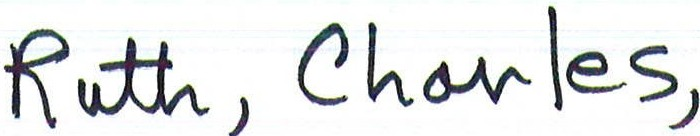 Ruth, Charles,